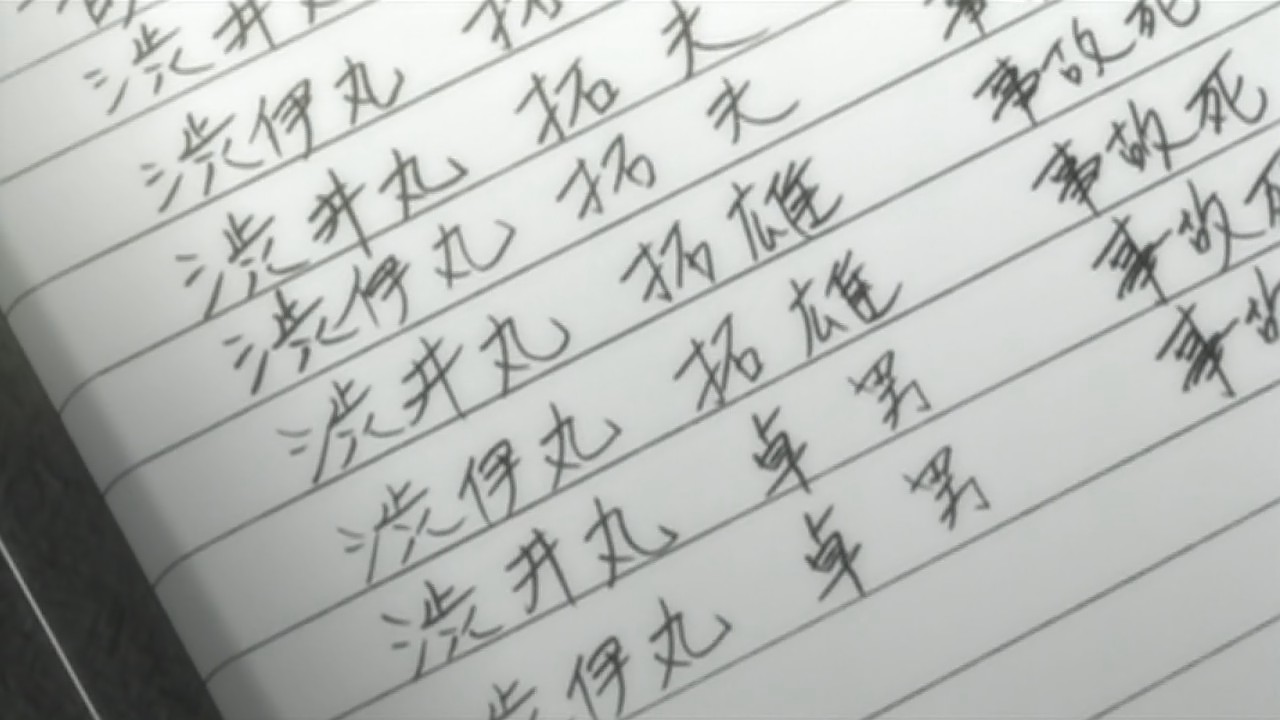 渋井
渋伊丸 拓
渋井丸 拓 夫
渋伊丸 拓 夫 事
渋井丸 拓雄 事故死
渋伊丸 拓雄 事故死
渋井丸 卓男 事故死
渋伊丸 卓男 事故